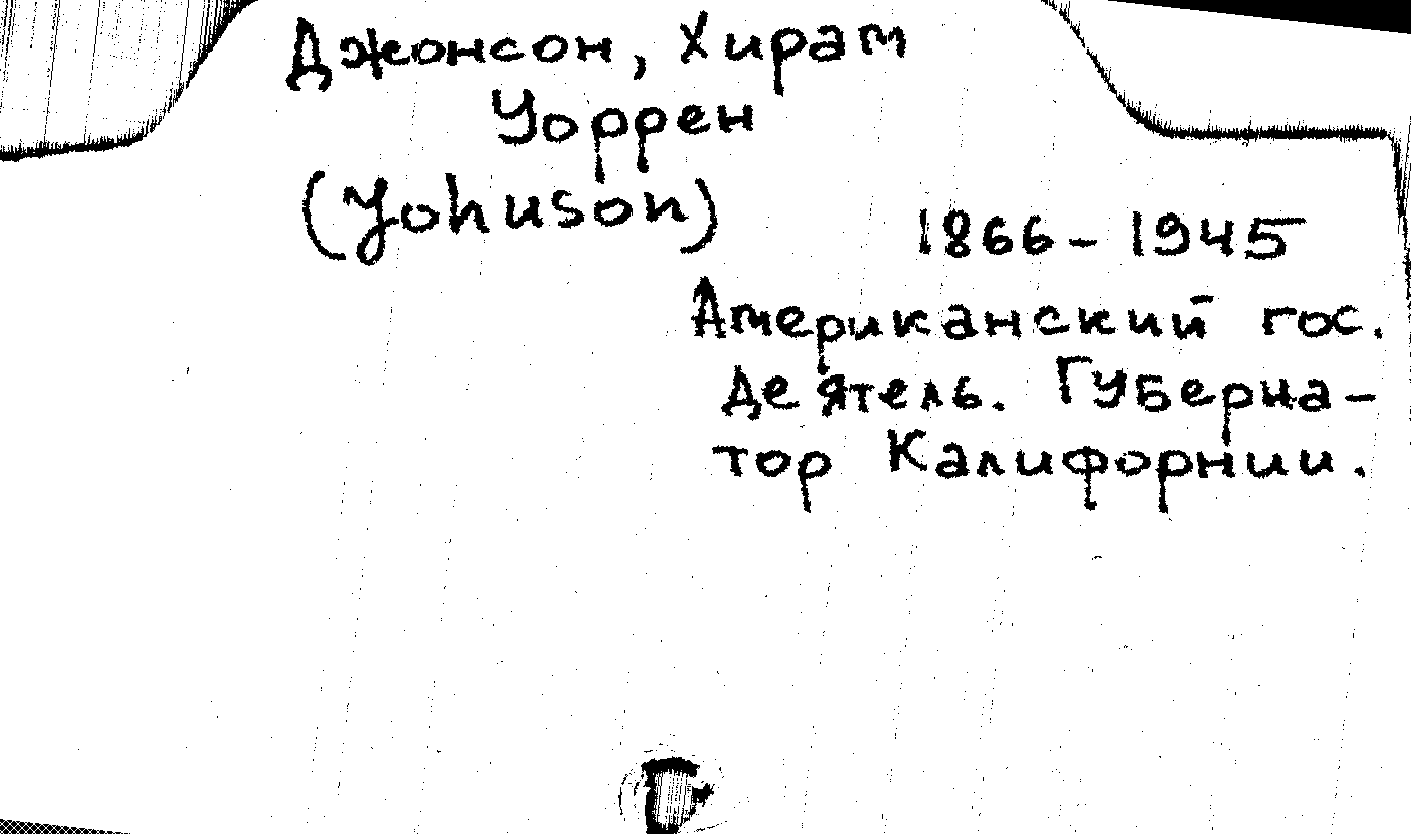 Джонсон, Хирам
Уоррен
(Yohnson)
1866-1945
Американский гос.
деятель. Губерна-
тор Калифорнии.